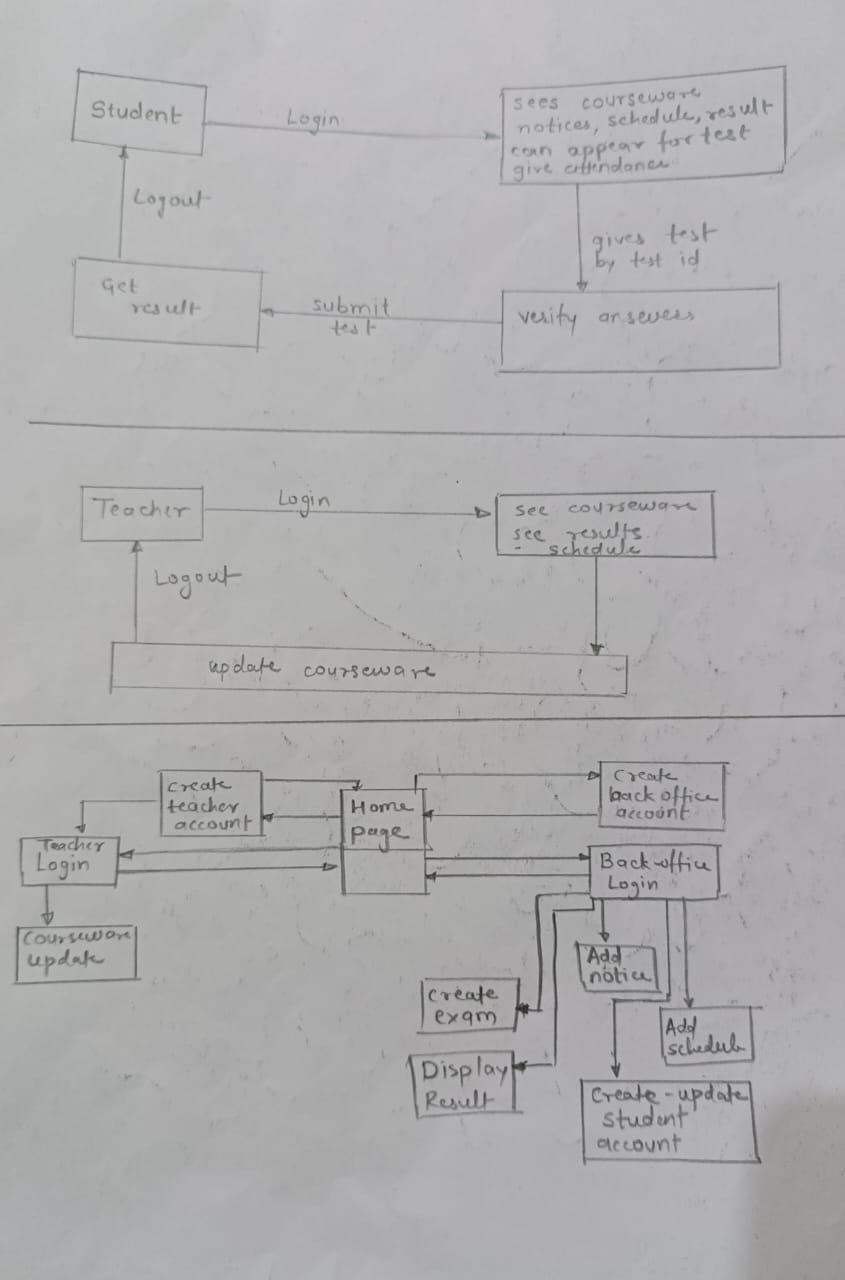 Student
Login
sees courseware
notices, schedule, result
can appear for test
give attendance
Logout
gives test
by test id
Get
result
submit
test
verify answers
Teacher
Login
see courseware
see results
- schedule
Logout
update courseware
Create
teacher
account
Home
page
Create
back office
account
Teacher
Login
Back-office
Login
Courseware
update
Add
notice
Create
exam
Add
schedule
Display
Result
Create-update
student
account